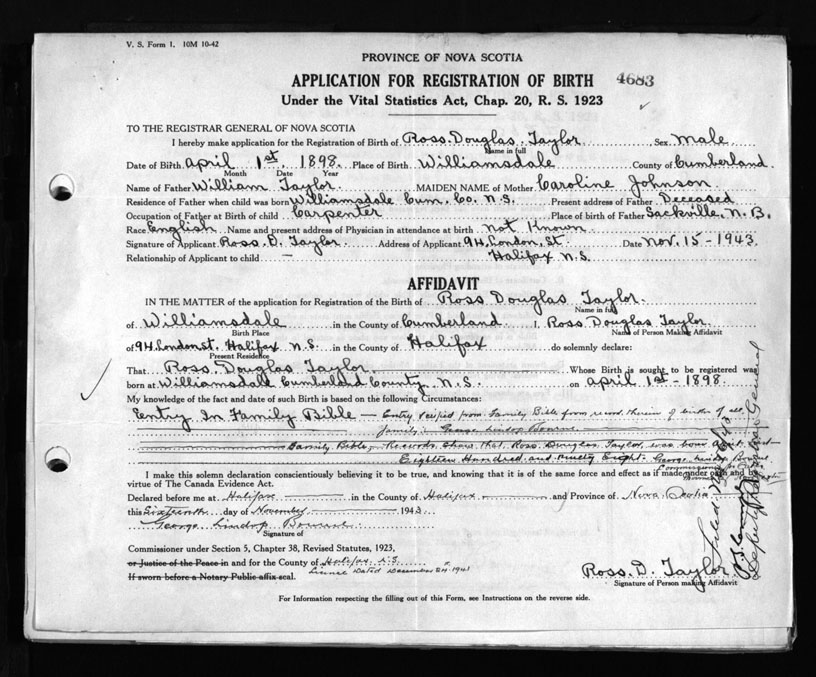 V. S. Form 1. 10M 10-42
PROVINCE OF NOVA SCOTIA
APPLICATION FOR REGISTRATION OF BIRTH 4683
Under the Vital Statistics Act, Chap. 20, R. S. 1923
TO THE REGISTRAR GENERAL OF NOVA SCOTIA
I hereby make application for the Registration of Birth of Ross Douglas Taylor Sex Male
Name in full
Date of Birth April 1st, 1898 Place of Birth Williamsdale County of Cumberland
Month Date Year
Name of Father William Taylor MAIDEN NAME of Mother Caroline Johnson
Residence of Father when child was born Williamsdale Cum. Co. N.S. Present address of Father Deceased
Occupation of Father at Birth of child Carpenter Place of birth of Father Sackville, N.B.
Race English Name and present address of Physician in attendance at birth not Known
Signature of Applicant Ross D. Taylor Address of Applicant 94 London St Date Nov. 15 - 1943
Relationship of Applicant to child — Halifax N.S.
AFFIDAVIT
IN THE MATTER of the application for Registration of the Birth of Ross Douglas Taylor
Name in full
of Williamsdale in the County of Cumberland I, Ross Douglas Taylor
Birth Place Name of Person Making Affidavit
of 94 London St. Halifax N.S. in the County of Halifax do solemnly declare:
Present Residence
That Ross Douglas Taylor Whose Birth is sought to be registered was
born at Williamsdale Cumberland County, N.S. on April 1st - 1898
My knowledge of the fact and date of such Birth is based on the following Circumstances:
Entry In Family Bible — Entry verified from Family Bible from record therein of births of all
family. George Lindop Bourne
Family Bible Records show that Ross Douglas Taylor was born April first
Eighteen Hundred and Ninety Eight. George Lindop Bourne
Commissioner
I make this solemn declaration conscientiously believing it to be true, and knowing it is of the same force and effect as if made under oath and by
virtue of The Canada Evidence Act.
Declared before me at Halifax in the County of Halifax and Province of Nova Scotia
this Sixteenth day of November 1943
George Lindop Bourne
Signature of
Commissioner under Section 5, Chapter 38, Revised Statutes, 1923,
or Justice of the Peace in and for the County of Halifax N.S.
License Dated December 24, 1941
If sworn before a Notary Public affix seal.
Ross. D. Taylor
Signature of Person making Affidavit
For Information respecting the filling out of this Form, see Instructions on the reverse side.
Filed
Deputy Registrar General